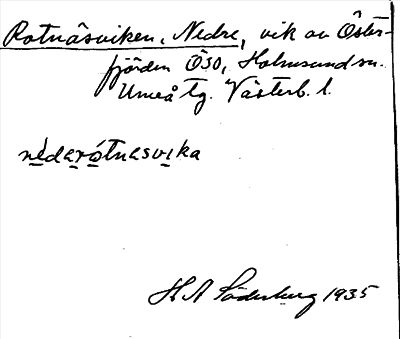 Rotnäsviken, Nedre, vik av Öster-
fjärden ÖSO, Holmsund sn.
Umeå tg. Västerb. l.
nedarótnasvika
H A Söderberg 1935